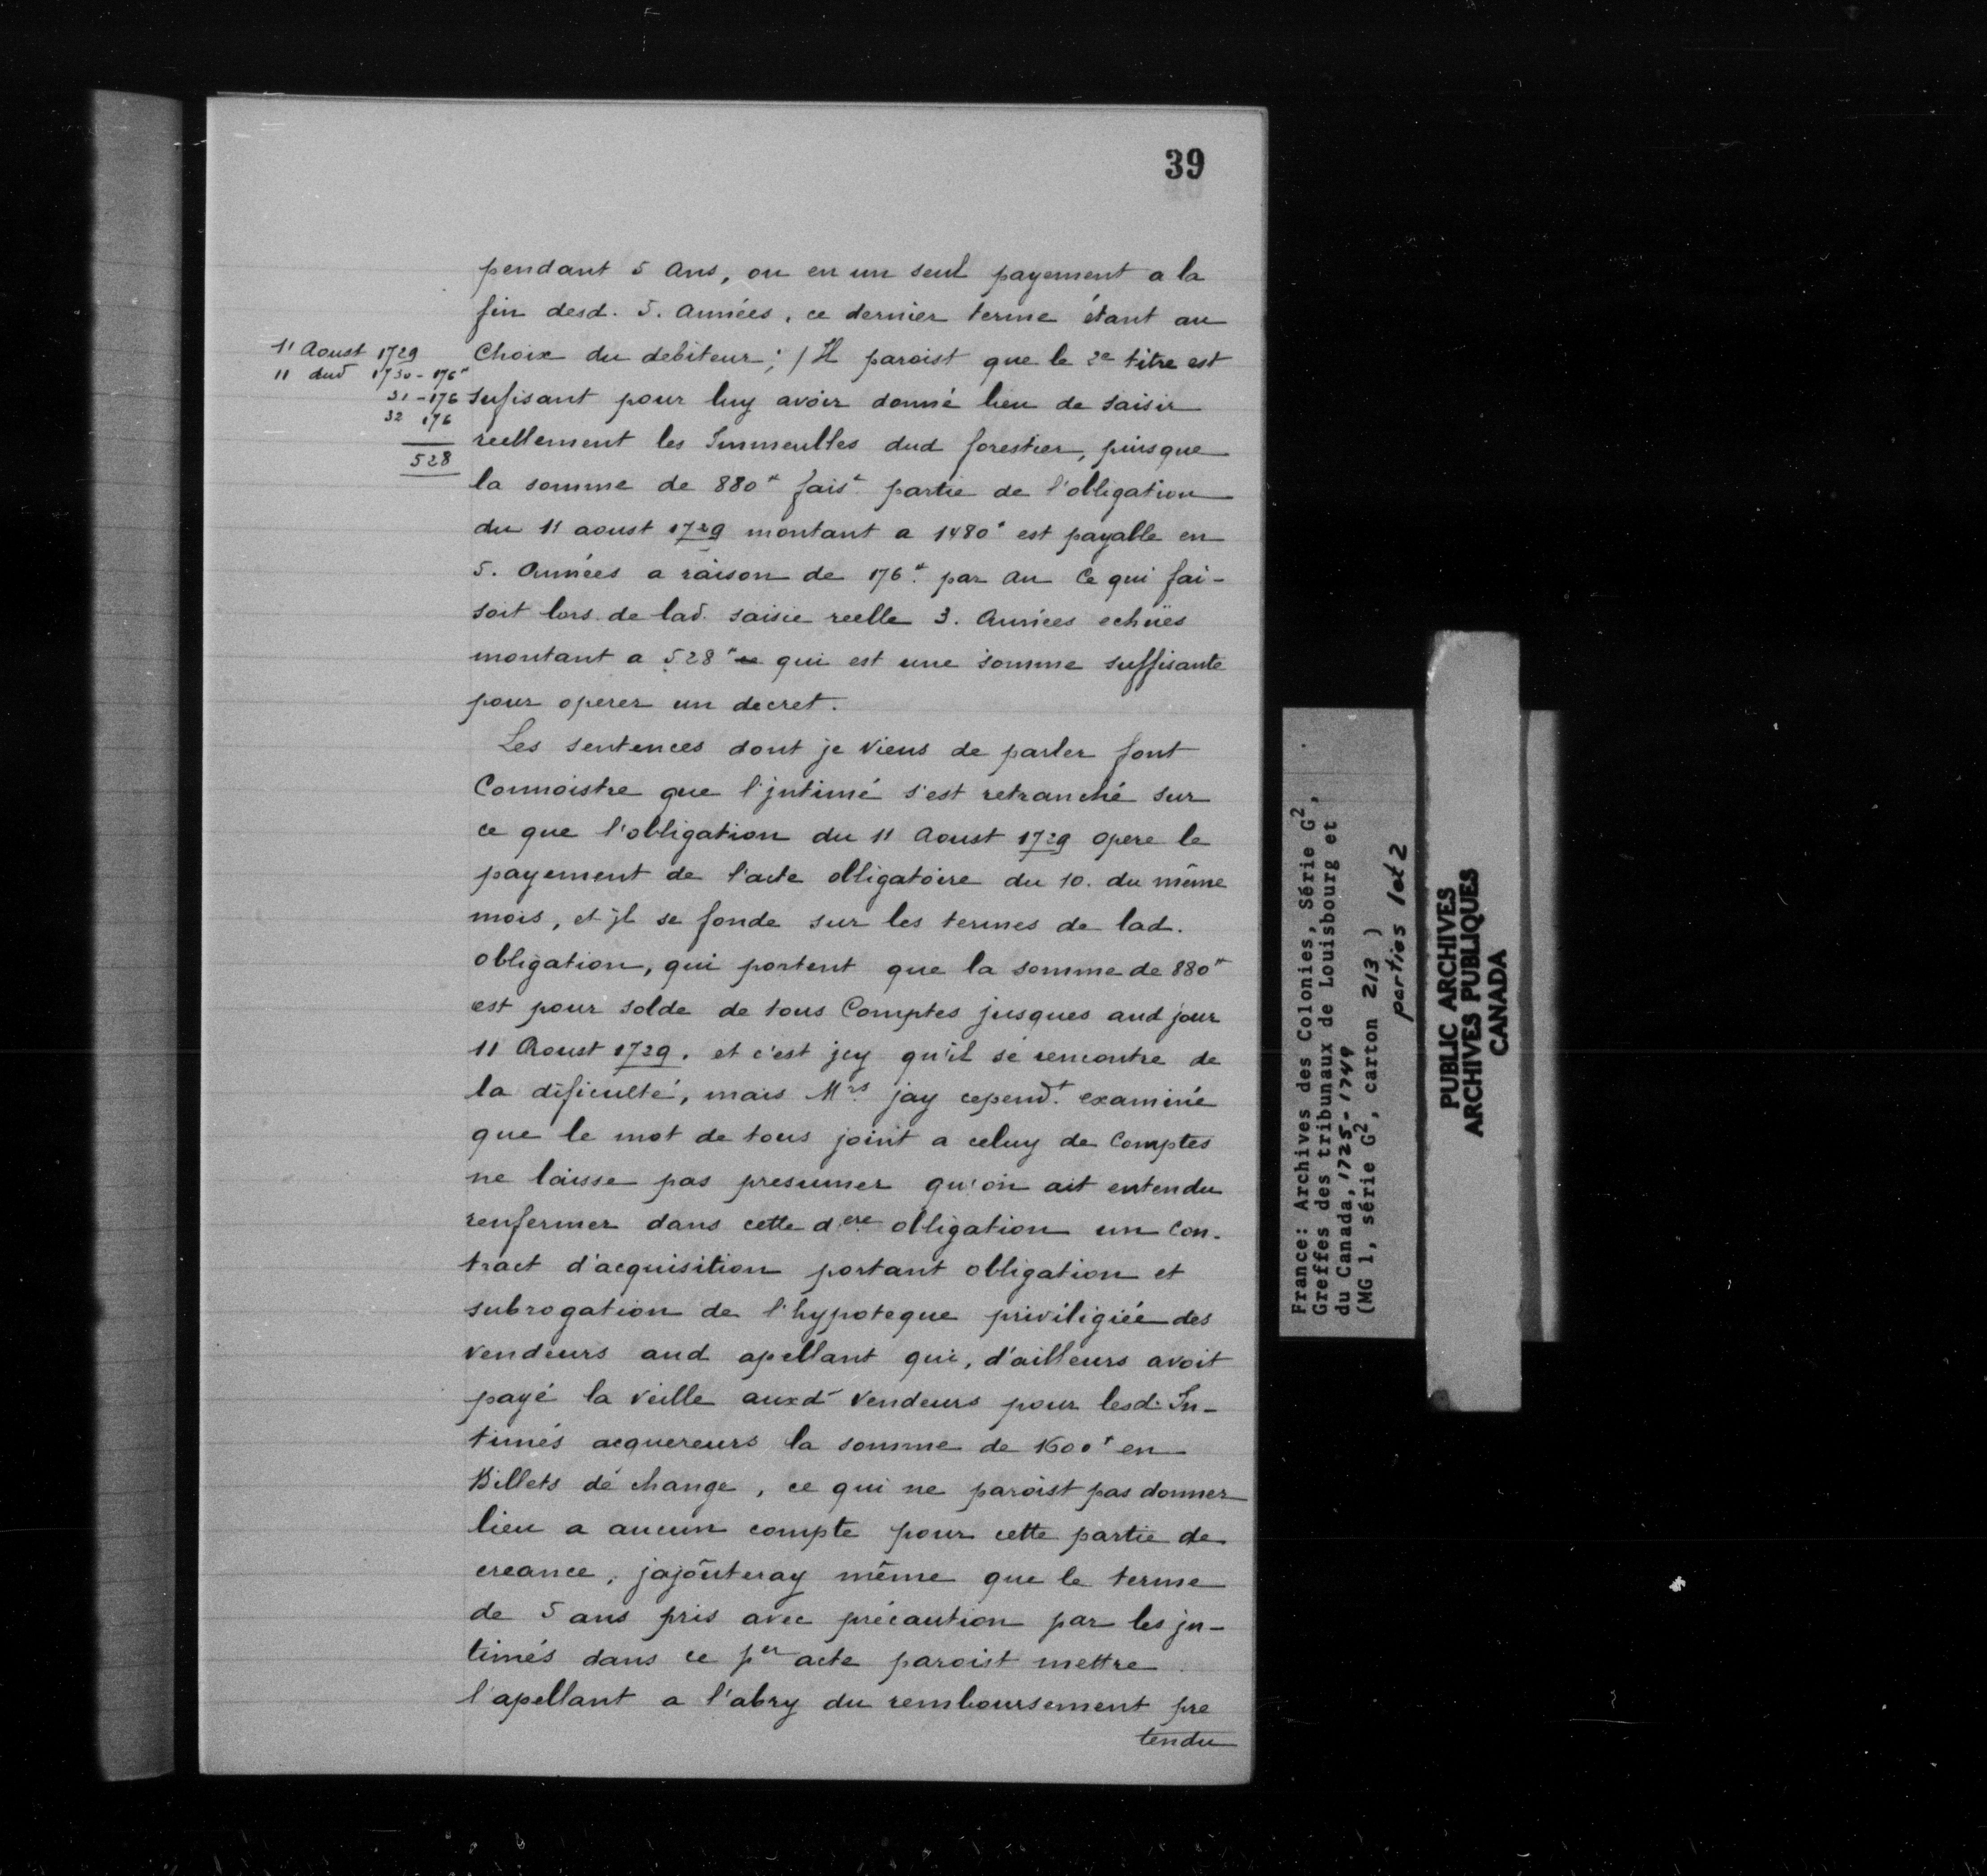 39
pendant 5 ans, ou en un seul payement a la
fin desd. 5. années, ce dernier terme étant au
Choix du debiteur; / Il paroist que le 2e titre est
sufisant pour luy avoir donné lieu de saisir
reellement les Immeubles dud forestier, puisque
la somme de 880# fais.t partie de l'obligation
du 11 aoust 1729 montant a 1480# est payable en
5. années a raison de 176# par an Ce qui fai-
soit lors de lad. saisie reelle 3. années echües
montant a 528# qui est une somme suffisante
pour operer un decret.
11 Aoust 1729
11 dud 1730 - 176#
31 - 176
32 176
528
Les sentences dont je viens de parler font
Connoistre que l'jntimé s'est retranché sur
ce que l'obligation du 11 Aoust 1729 opere le
payement de l'acte obligatoire du 10. du même
mois, et jl se fonde sur les termes de lad.
obligation, qui portent que la somme de 880#
est pour solde de tous Comptes jusques aud jour
11 Aoust 1729, et c'est jcy qu'il se rencontre de
la dificulté, mais Mrs jay cepend.t examiné
que le mot de tous joint a celuy de Comptes
ne laisse pas presumer qu'on ait entendu
renfermer dans cette dere obligation un con-
tract d'acquisition portant obligation et
subrogation de l'hypoteque priviligiée des
vendeurs aud apellant qui, d'ailleurs avoit
payé la veille auxd vendeurs pour lesd. In-
timés acquereurs la somme de 1600# en
Billets dé change, ce qui ne paroist pas donner
lieu a aucun compte pour cette partie de
creance, jajoûteray même que le terme
de 5 ans pris avec précaution par les jn-
timés dans ce per acte paroist mettre
l'apellant a l'abry du remboursement pre
tendu
France: Archives des Colonies, Série G2,
Greffes des tribunaux de Louisbourg et
du Canada, 1725-1749
(MG 1, série G2, carton 213 )
parties 1et 2
PUBLIC ARCHIVES
ARCHIVES PUBLIQUES
CANADA